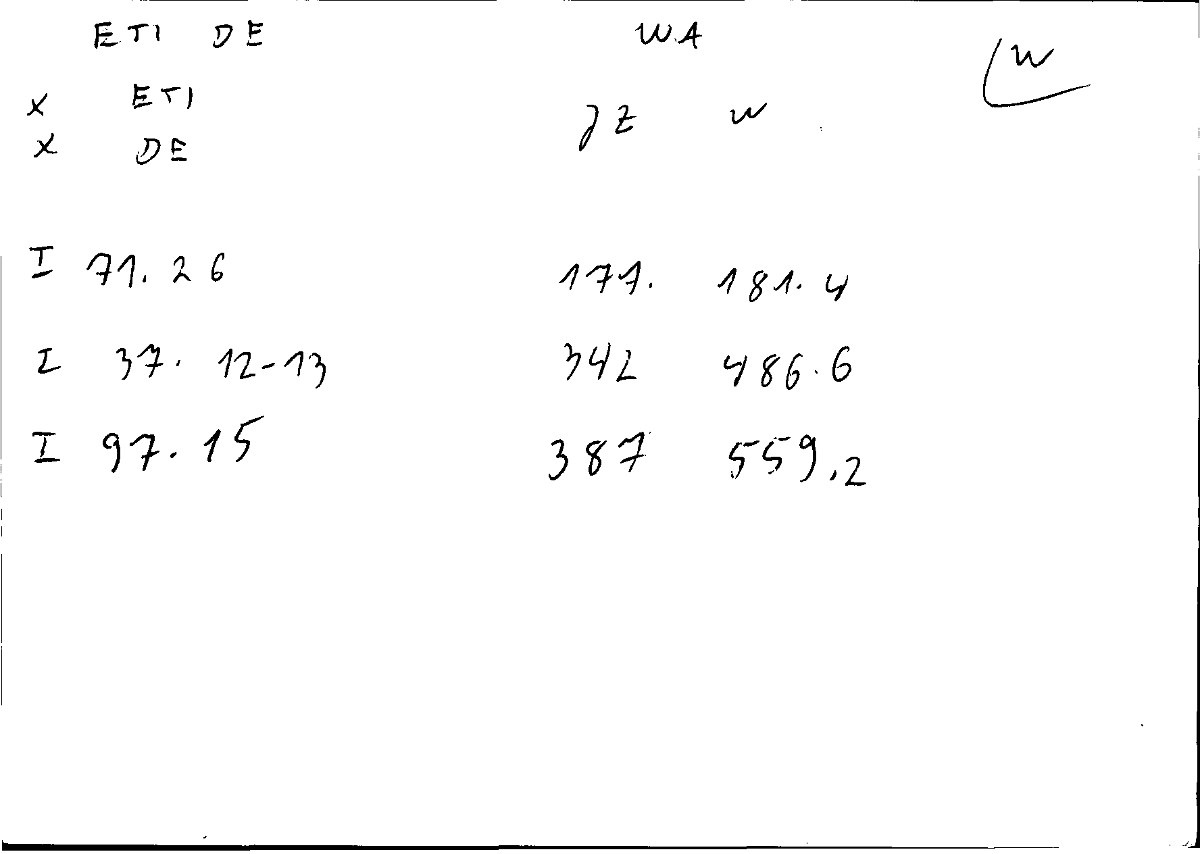 ETI DE WA W
X ETI
X DE JZ W
I 71.26 177. 181.4
I 37. 12-13 342 486.6
I 97.15 387 559.2